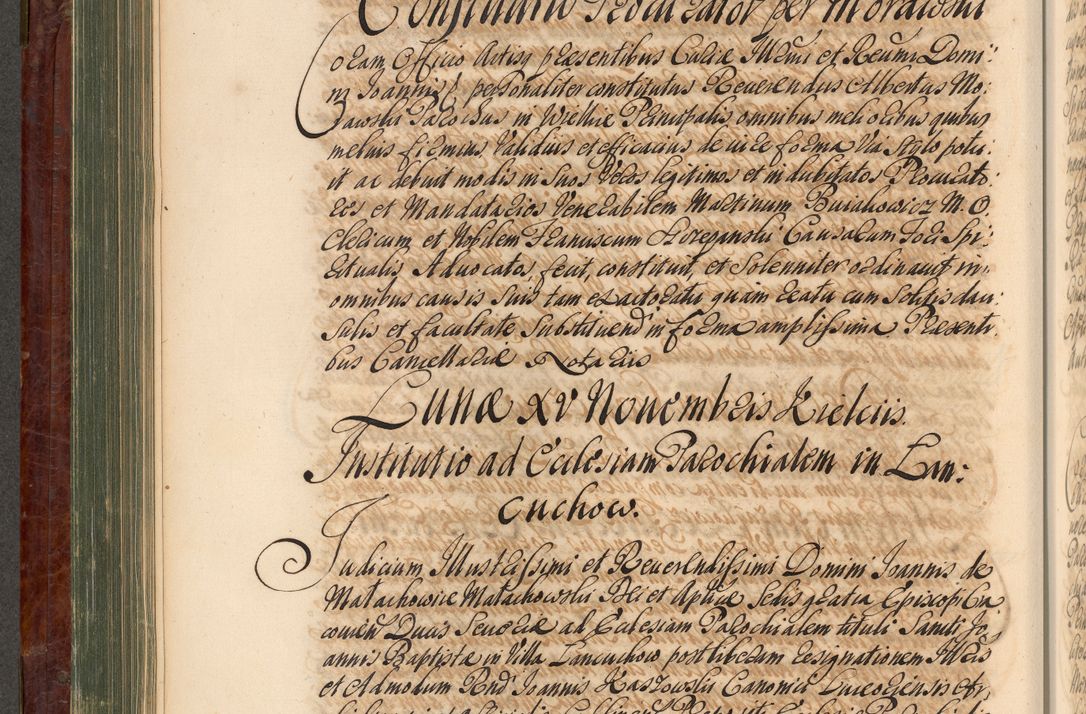 Constitutio Procurator per Morawski
Coram Officio Actisq presentibus Curiæ Illmi et Reumi Domi:
ni Joannis personaliter constitutus Reuerendus Albertus Mo:
rawski Parochus in Principalis omnibus melioribus quibus
melius firmius validius et efficacius de iure forma via stylo potu:
it ac debuit modis in suos veros legitimos et indubitatos Procurato:
res et Mandatarios Venerabilem Martinum Burakowicz M. O.
Clericum et Nobilem Franciscum Szczepanski Causarum Fori Spi:
ritualis Aduocatos, fecit, constituit, et Solenniter ordinauit in
omnibus causis suis tam et actoratu quam reatu cum Solitis clau
sulis et facultate Substituend in forma amplissima Præsenti
bus Cancellariæ Notariis
Lunæ XV Nouembris Kielciis.
Institutio ad Ecclesiam Parochialem in Lan:
cuchow.
Judicium Illustrissimi et Reuerendissimi Domini Joannis de
Małachowice Małachowski Dei et Aplicæ Sedis gratia Episcopi Cra
couien Ducis Seueriæ ad Ecclesiam Parochialem tituli Sancti Jo
annis Baptistæ in Villa Lancuchow post liberam resignationem Illris
et Admodum Rndi Joannis Kaszowski Canonici Luceoriensis